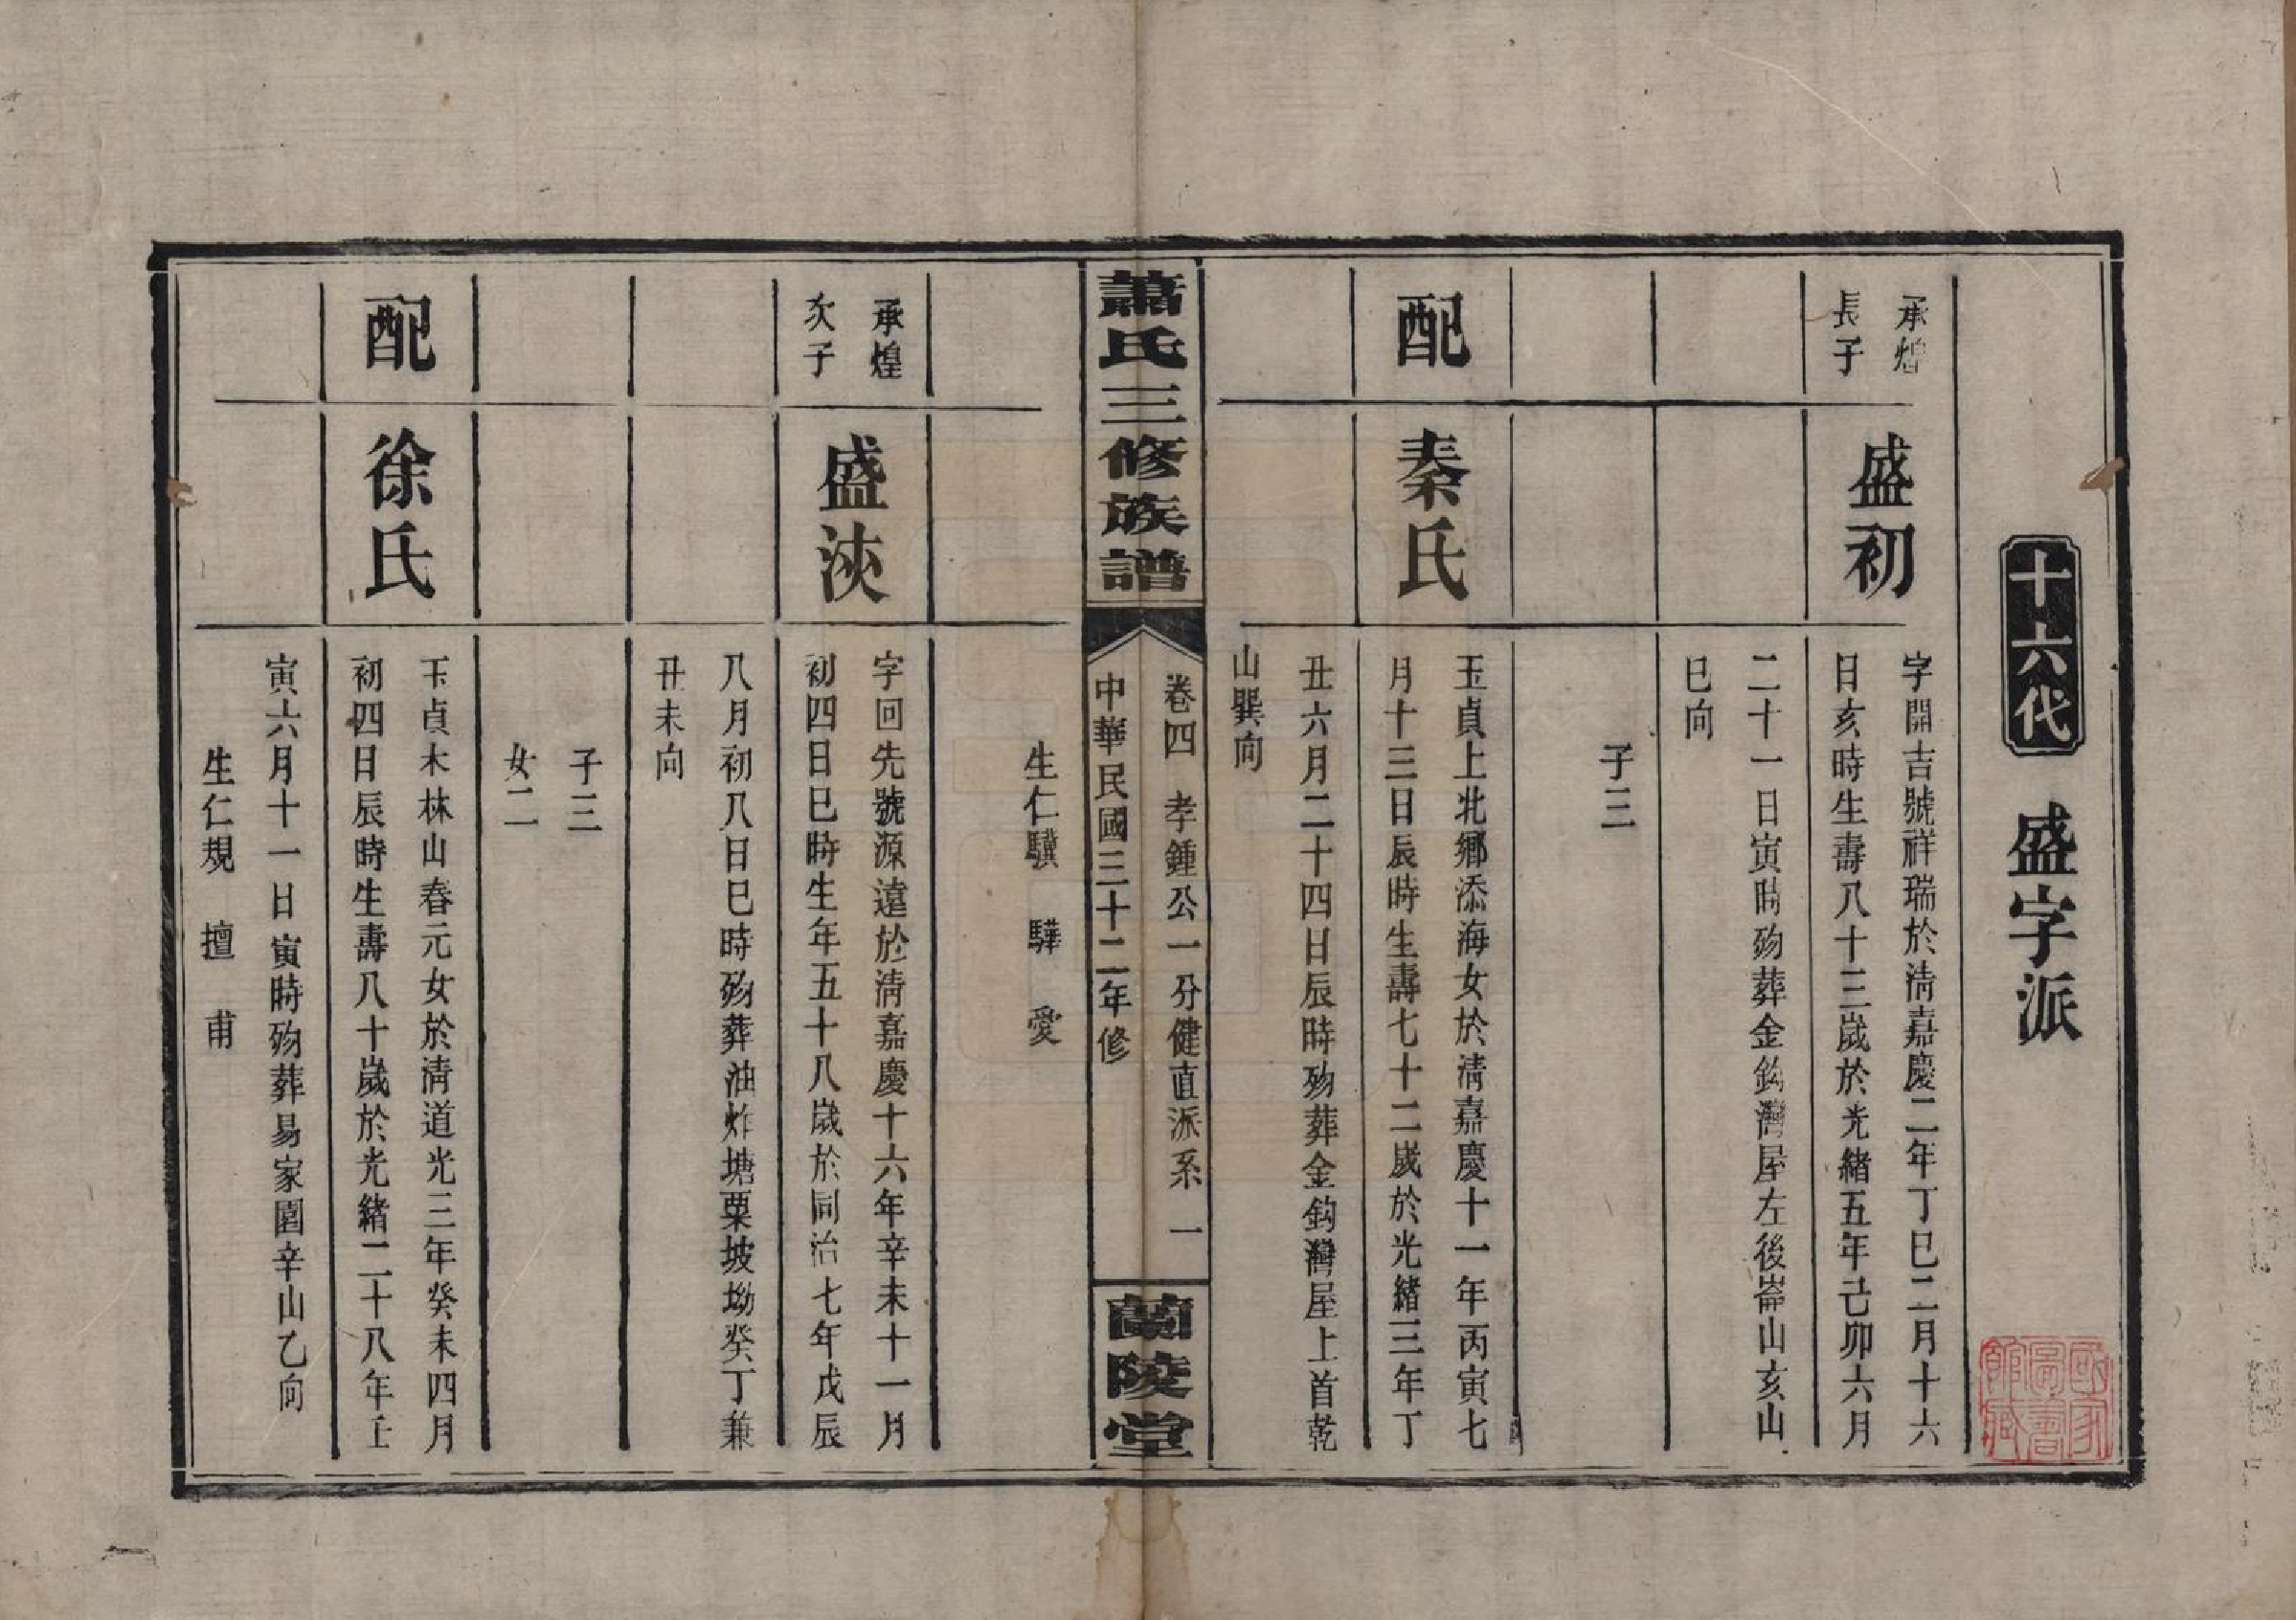 十六代　盛字派
承煌
長子
盛初
字開吉號祥瑞於清嘉慶二年丁巳二月十六
日亥時生壽八十三歲於光緒五年己卯六月
二十一日寅時歿葬金鈎灣屋左後崙山亥山
巳向
子三
配
秦氏
玉貞上北鄉添海女於清嘉慶十一年丙寅七
月十三日辰時生壽七十二歲於光緒三年丁
丑六月二十四日辰時歿葬金鈎灣屋上首乾
山巽向
蕭氏三修族譜
卷四　孝鍾公一分健直派系　一
中華民國三十二年修
蘭陵堂
生仁驥　驊　愛
承煌
次子
盛浹
字回先號源遠於清嘉慶十六年辛未十一月
初四日巳時生年五十八歲於同治七年戊辰
八月初八日巳時歿葬油炸塘栗坡坳癸丁兼
丑未向
子三
女二
配
徐氏
玉貞木林山春元女於清道光三年癸未四月
初四日辰時生壽八十歲於光緒二十八年壬
寅六月十一日寅時歿葬易家園辛山乙向
生仁規　擅　甫
國家
圖書
館藏